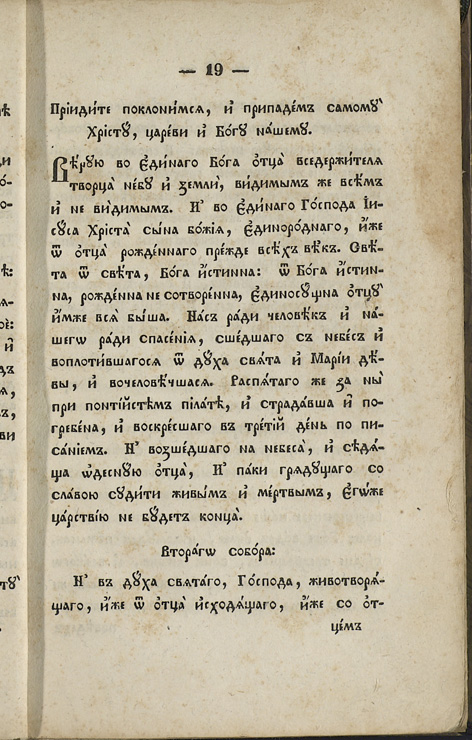 — 19 —
Прїиди́те поклони́мсѧ, и҆ припаде́мъ самому̀
Хрїстꙋ̀, царе́ви и҆ Бо́гꙋ на́шемꙋ.
Вѣ́рꙋю во є҆ди́наго Бо́га ѻ҆тца̀ вседержи́телѧ
творца̀ не́бꙋ и҆ землѝ, ви́димымъ же всѣ̑мъ
и҆ не ви́димымъ. И҆ во є҆ди́наго Го́спода Іи-
сꙋ́са Хрїста̀ сы́на бо́жїѧ, є҆диноро́днаго, и҆́же
ѿ ѻ҆тца̀ рожде́ннаго пре́жде всѣ́хъ вѣ́къ. Свѣ́-
та ѿ свѣ́та, Бо́га и҆́стинна: ѿ Бо́га и҆́стин-
на, рожде́нна не сотворе́нна, є҆диносꙋ́щна ѻ҆тцꙋ̀
и҆́мже всѧ̑ бы́ша. На́съ ра́ди человѣ́къ и҆ на́-
шегѡ ра́ди спасе́нїѧ, сше́дшаго съ небе́съ и҆
воплоти́вшагосѧ ѿ дꙋ́ха свѧ́та и҆ Марі́и дѣ́-
вы, и҆ вочеловѣ́чшасѧ. Распѧ́таго же за ны̀
при понті́йстѣмъ піла́тѣ, и҆ страда́вша и҆ по-
гребе́на, и҆ воскре́сшаго въ тре́тїй де́нь по пи-
са́нїемъ. И҆ возше́дшаго на небеса̀, и҆ сѣдѧ́-
ща ѡ҆деснꙋ́ю ѻ҆тца̀, И҆ па́ки грѧдꙋ́щаго со
сла́вою сꙋди́ти живы́мъ и҆ ме́ртвымъ, є҆гѡ́же
ца́рствїю не бꙋ́детъ конца̀.
Втора́гѡ собо́ра:
И҆ въ дꙋ́ха свѧта́го, Го́спода, животворѧ́-
щаго, и҆́же ѿ ѻ҆тца̀ и҆сходѧ́щаго, и҆́же со ѻ҆т-
це́мъ